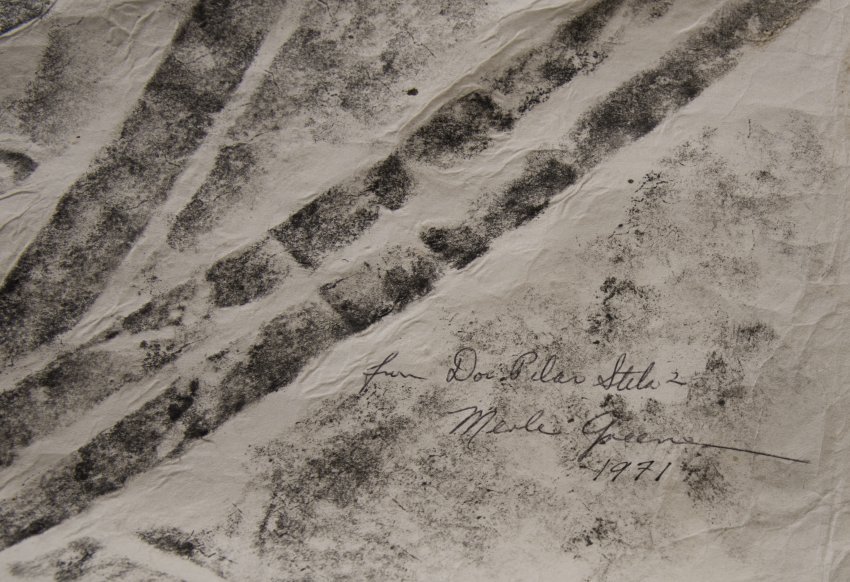 from Dos Pilas Stela 2
Merle Greene
1971